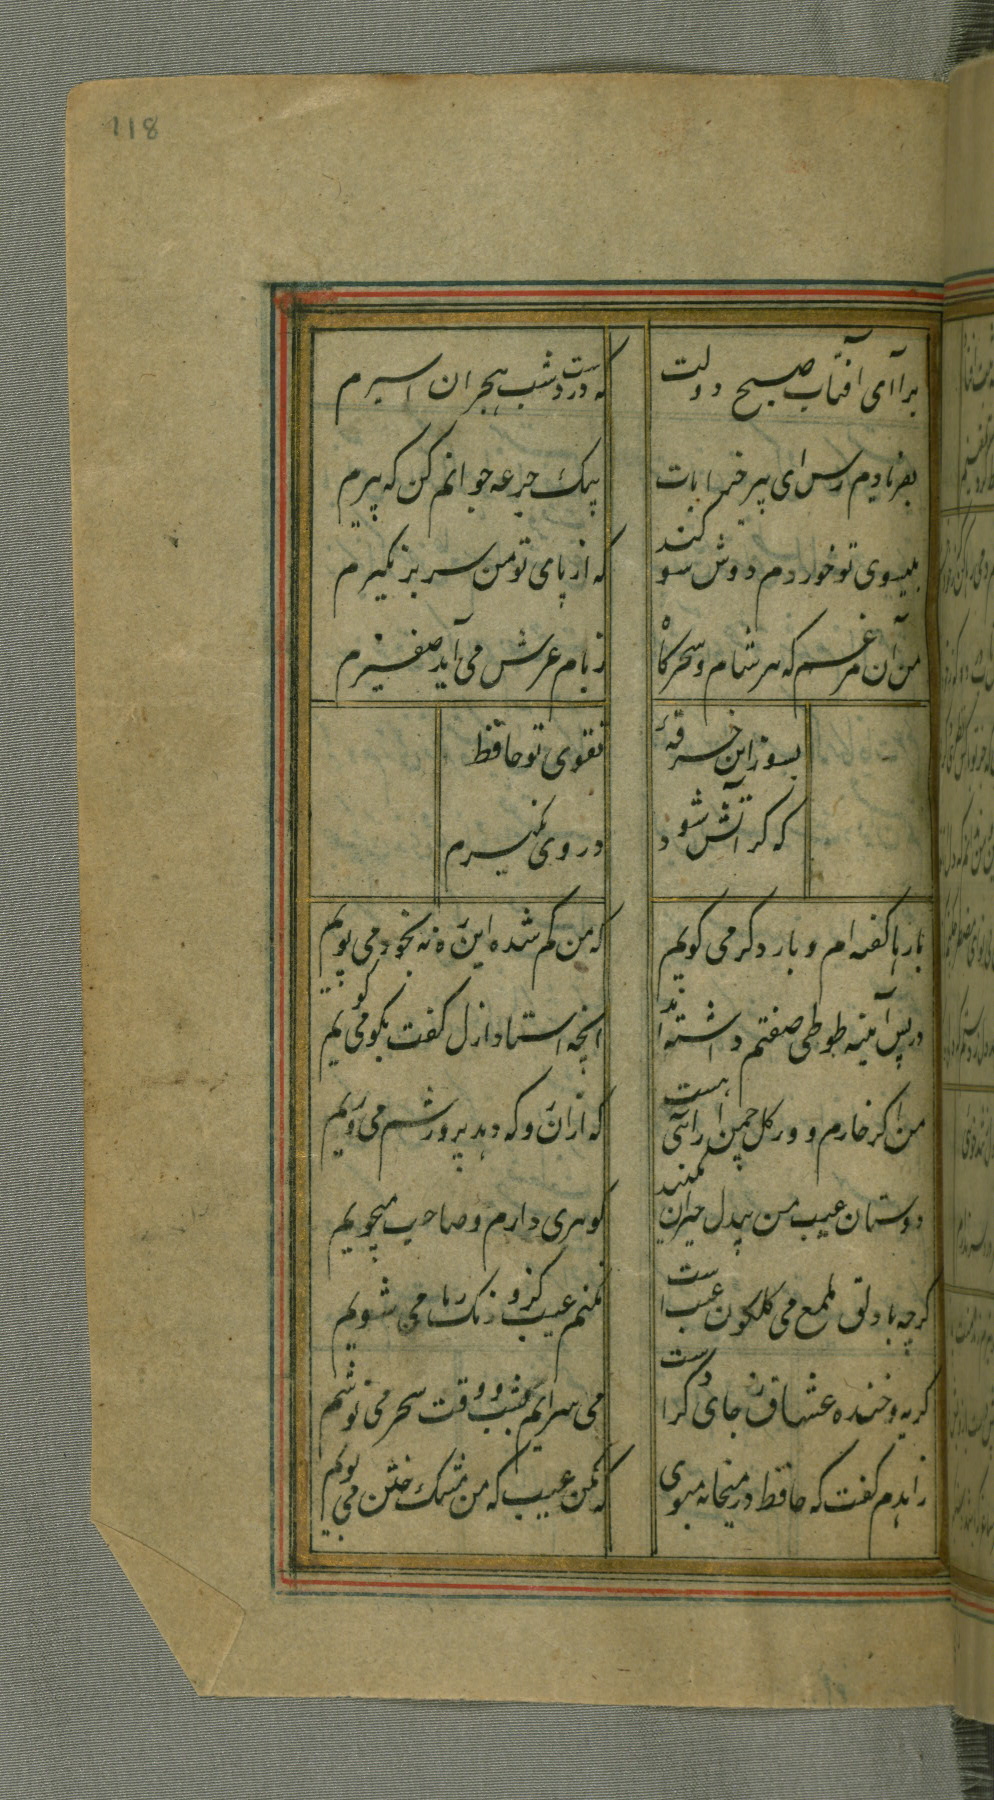 118
برآ ای آفتاب صبح دولت
که در دست شب هجران اسیرم
بفریادم رس ای پیر خرابات
بیک جرعه جوانم کن که پیرم
بکیسوی تو خوردم دوش سوکند
که از پای تو من سر بر نکیرم
من آن مرغم که هر شام و سحرکاه
ز بام عرش می آید صفیرم
بسوز این خرقهٔ تقوی تو حافظ
که کر آتش شود در وی نکیرم
بارها کفته ام و بار دکر می کویم
که من کم شده این ره نه بخود می پویم
در پس آینه طوطی صفتم داشته اند
آنچه استاد ازل کفت بکو می کویم
من اکر خارم و ور کل چمن آرائی هست
که از ان رو که دهد پرورشم می رویم
دوستان عیب من بیدل حیران مکنید
کوهری دارم و صاحب میجویم
کرچه با دلق ملمع می کلکون عیبست
نکنم عیب کزو رنک ریا می شویم
کریه و خنده عشاق ز جای دکراست
می سرایم بشب و وقت سحر می نوشم
زاهدم کفت که حافظ در میخانه مبوی
که مکن عیب که من مشک ختن می بویم